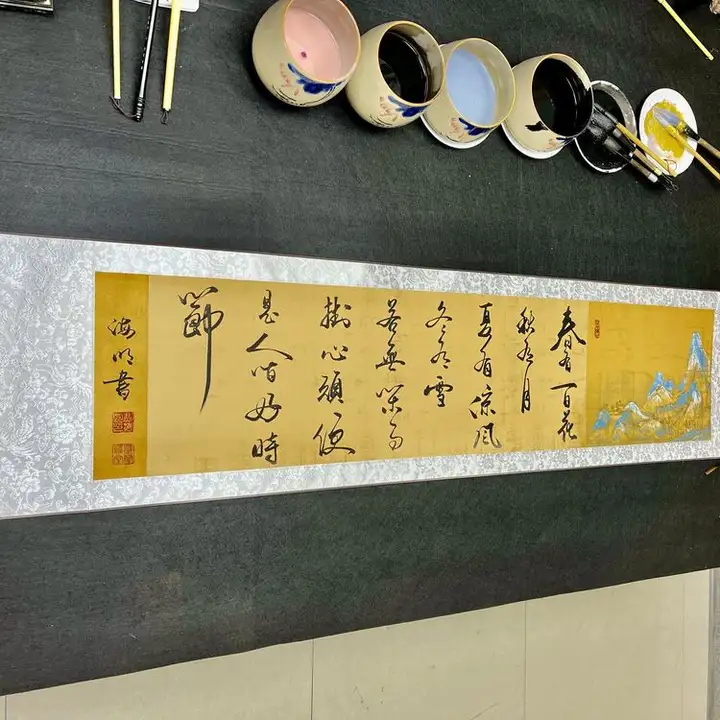 春有百花
秋有月
夏有涼風
冬有雪
若無閑事
掛心頭便
是人间好時
節
海明書